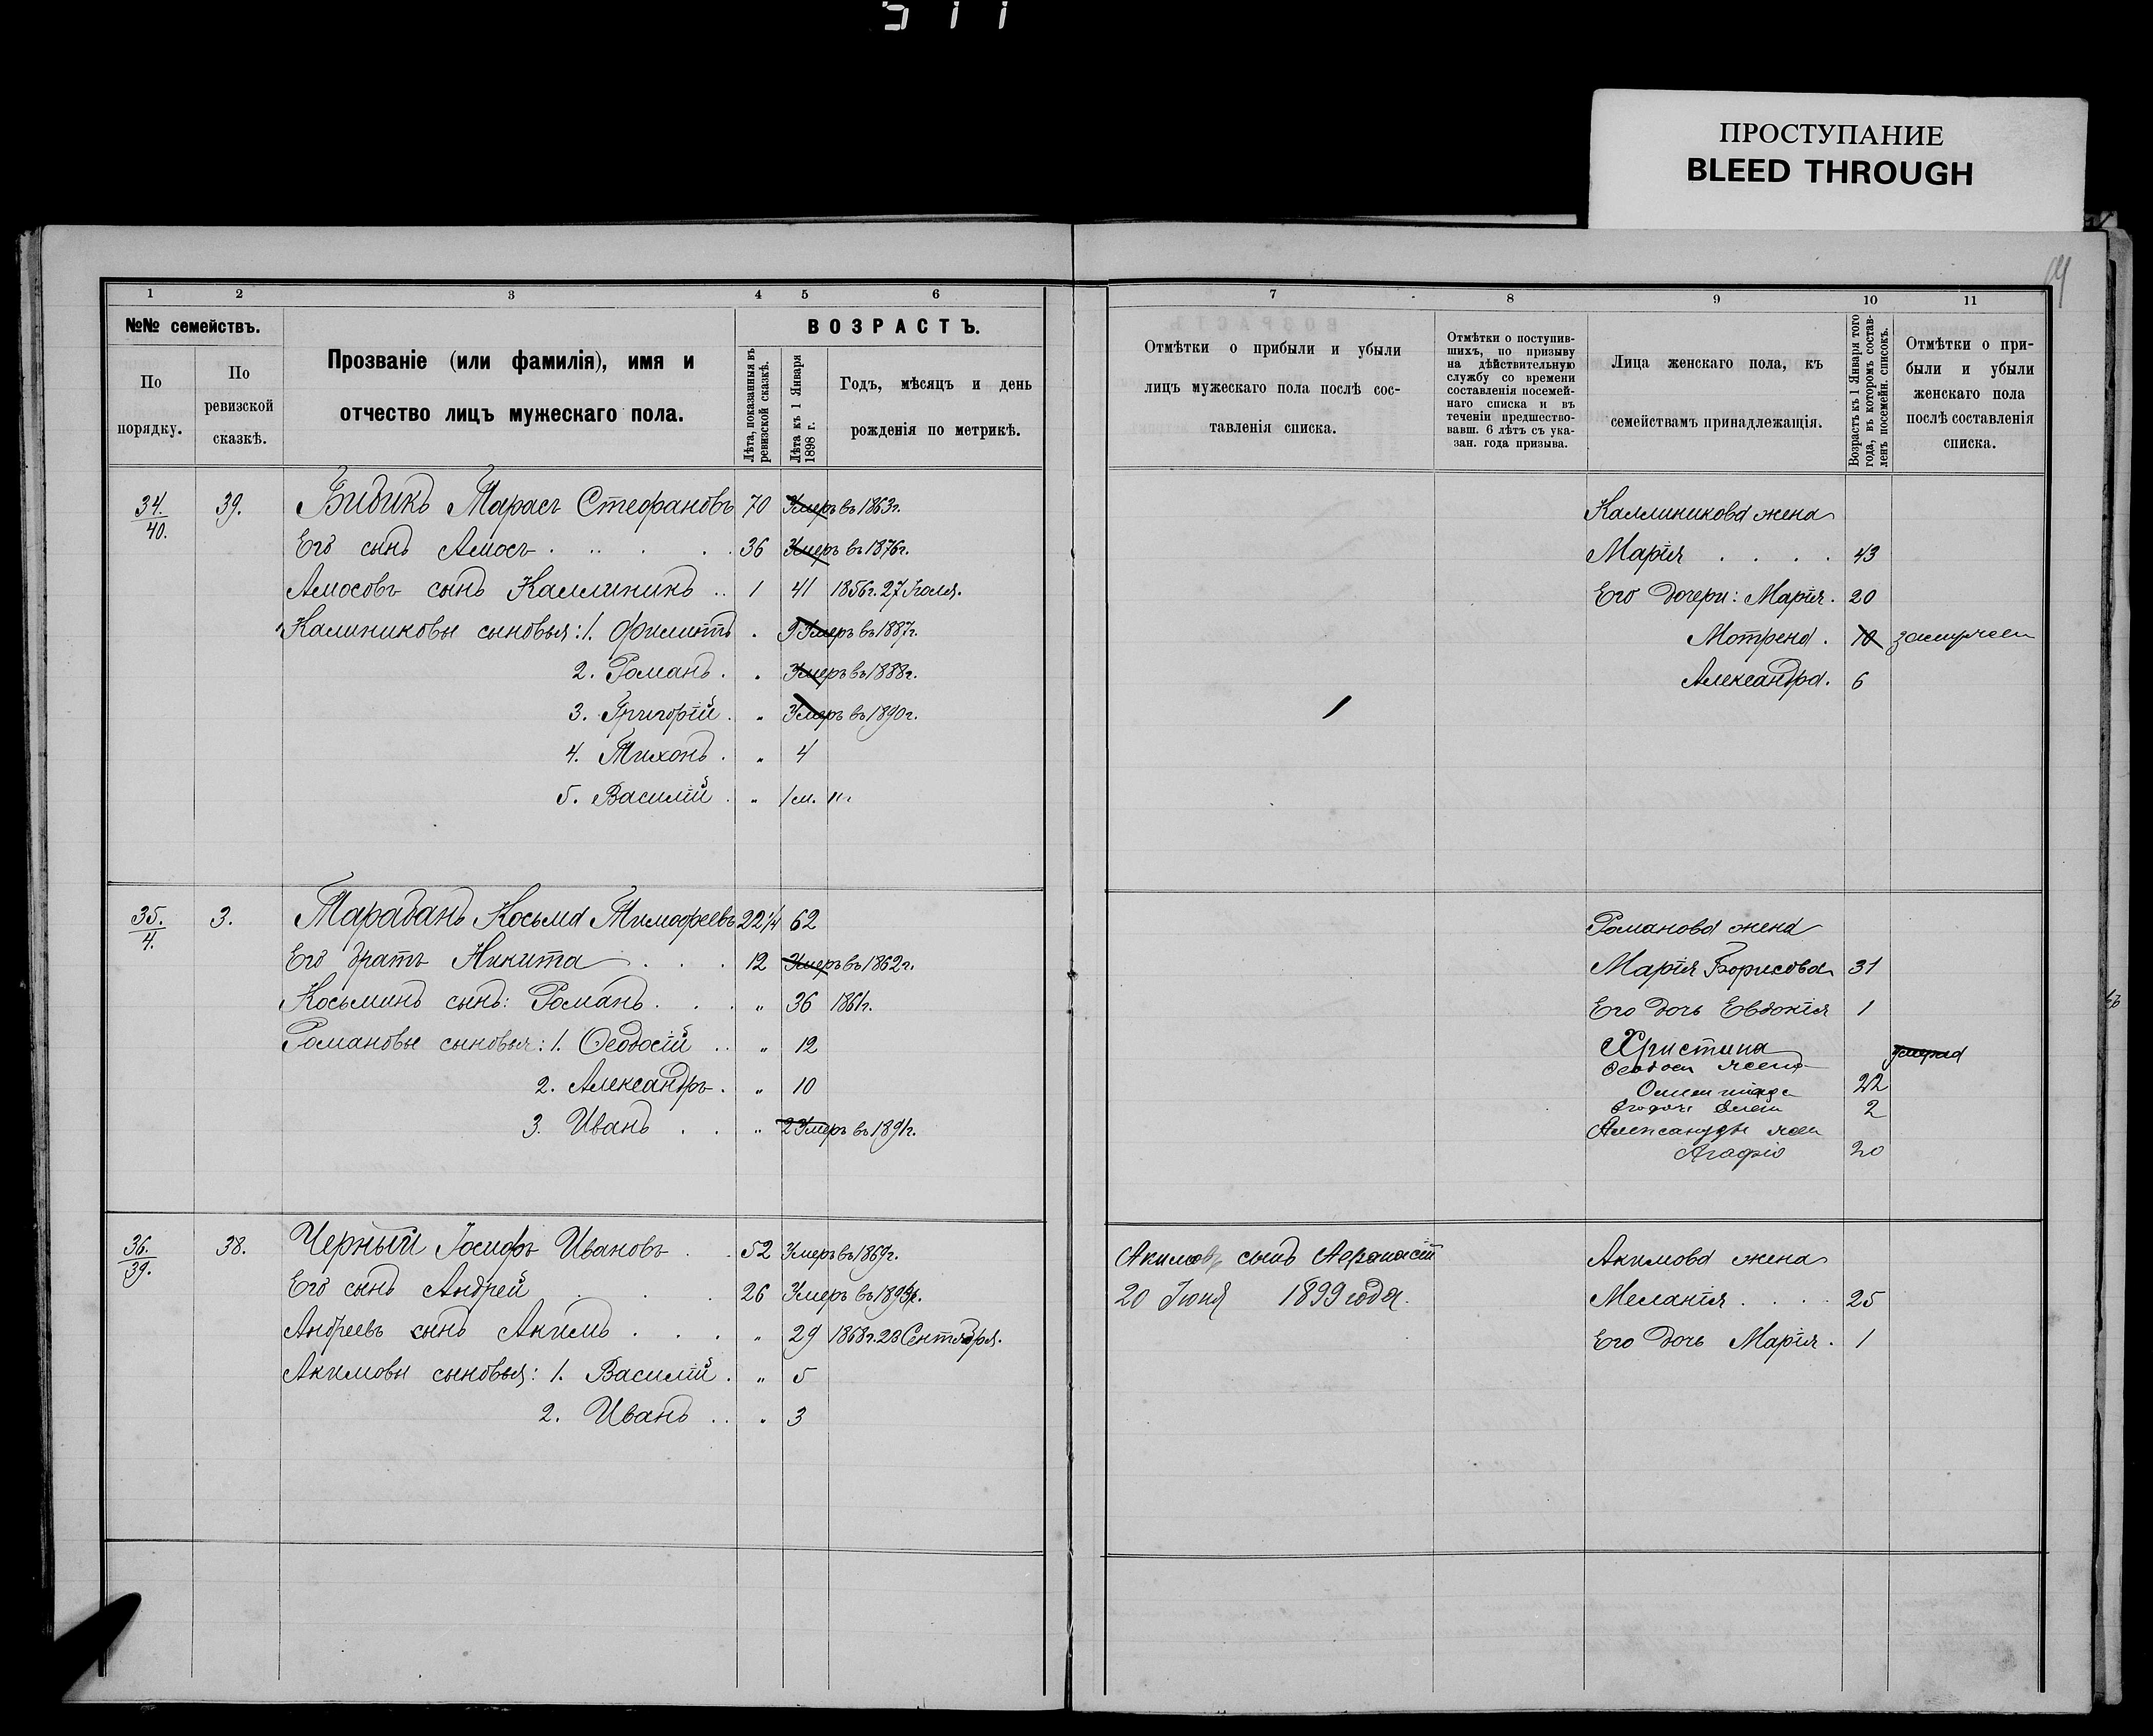 511
ПРОСТУПАНИЕ
BLEED THROUGH
1 2 3 4 5 6
№№ семействъ.
По порядку.
По ревизской сказкѣ.
Прозваніе (или фамилія), имя и
отчество лицъ мужескаго пола.
ВОЗРАСТЪ.
Лѣта, показанныя въ ревизской сказкѣ.
Лѣта къ 1 Января 1898 г.
Годъ, мѣсяцъ и день
рожденія по метрикѣ.
34. 40. 39. Бидикъ Тарасъ Стефановъ 70 Умеръ въ 1863г.
Его сынъ Амосъ 36 Умеръ въ 1876г.
Амосовъ сынъ Каллиникъ 1 41 1856г. 27 Іюля.
Калиниковы сыновья: 1. Филиппъ 9 Умеръ въ 1887г.
2. Романъ. Умеръ въ 1888г.
3. Григорій. Умеръ въ 1890г.
4. Тихонъ. 4
5. Василій. 1 м.
35. 4. 3. Тарабанъ Косьма Тимофеевъ 22 1/4 62
Его братъ Никита 12 Умеръ въ 1862г.
Косьминъ сынъ: Романъ. 36 1861г.
Романовы сыновья: 1. Ѳеодосій 12
2. Александръ. 10
3. Иванъ 2 Умеръ въ 1891г.
36. 39. 38. Черный Іосифъ Ивановъ 52 Умеръ въ 1869г.
Его сынъ Андрей 26 Умеръ въ
Андреевъ сынъ Акимъ 29 1868г. 28 Сентября.
Акимовы сыновья: 1. Василій. 5
2. Иванъ 3
7 8 9 10 11
Отмѣтки о прибыли и убыли
лицъ мужескаго пола послѣ сос-
тавленія списка.
Отмѣтки о поступив-
шихъ, по призыву
на дѣйствительную
службу со времени
составленія посемей-
наго списка и въ
теченіи предшество-
вавш. 6 лѣтъ съ ука-
зан. года призыва.
Лица женскаго пола, къ
семействамъ принадлежащія.
Возрастъ къ 1 Января того
года, въ которомъ состав-
ленъ посемейн. списокъ.
Отмѣтки о при-
были и убыли
женскаго пола
послѣ составленія
списка.
Каллиникова жена
Марія 43
Его дочери: Марія. 20
Мотрена. 10
Александра. 6
Романова жена
Марія Борисова 31
Его дочь Евдокія 1
Христина умерла
22
2
20
Акимовъ сынъ Афанасій
20 Іюня 1899 года.
Акимова жена
Меланія 25
Его дочь Марія. 1